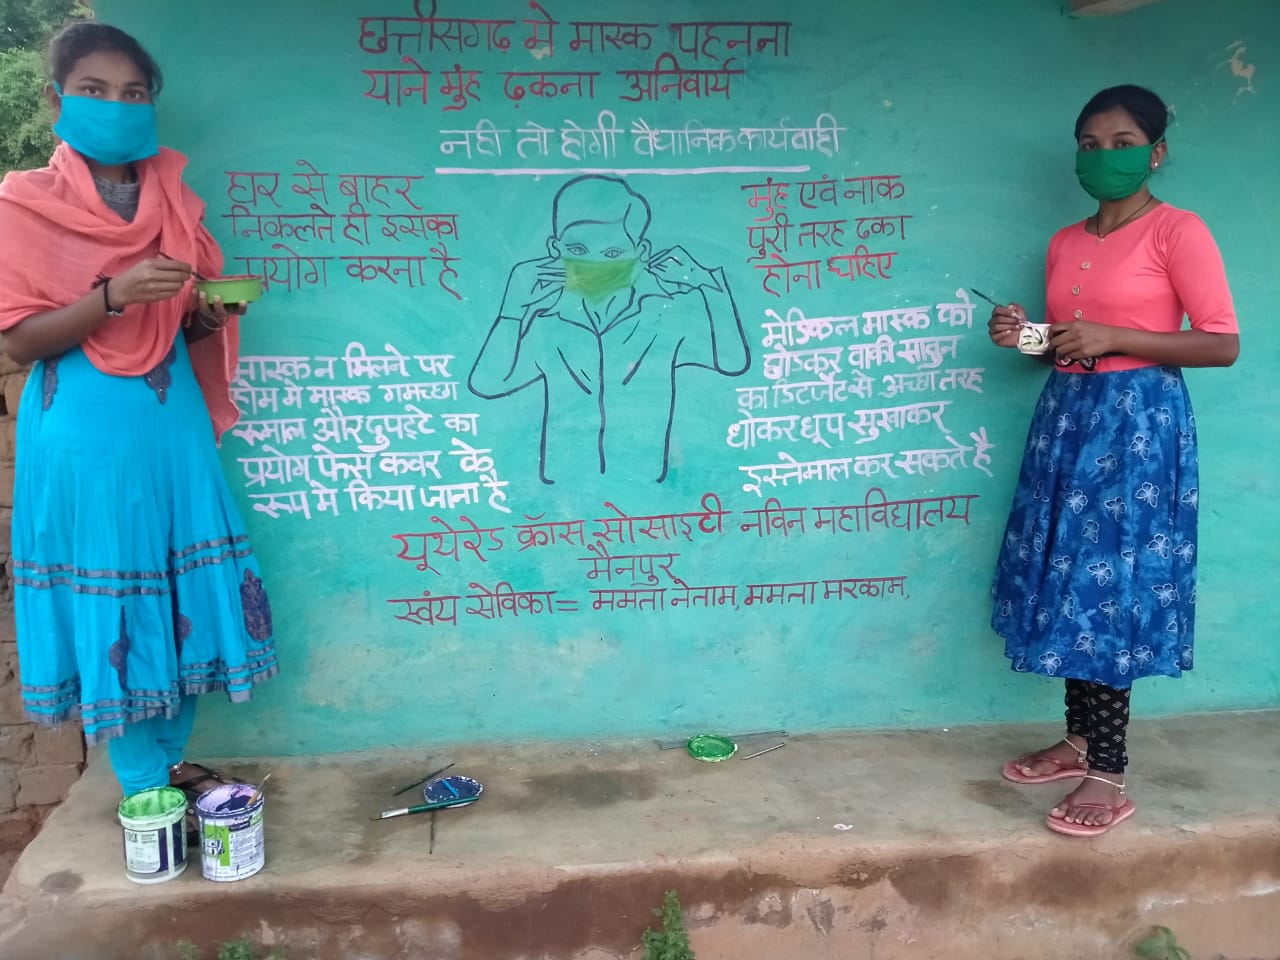 छत्तीसगढ़ मे मास्क पहनना
याने मुंह ढ़कना अनिवार्य
नही तो होगी वैधानिक कार्यवाही
घर से बाहर
निकलते ही इसका
प्रयोग करना है
मुंह एवं नाक
पुरी तरह ढका
होना चहिए
मास्क न मिलने पर
होम मे मास्क गमच्छा
रूमाल और दुपट्टे का
प्रयोग फेस कवर के
रूप मे किया जाना है
मेडिकल मास्क को
छोडकर वाकी साबुन
का डिटर्जेंट से अच्छी तरह
धोकर धूप सुखाकर
इस्तेमाल कर सकते है
यूथ रेड क्रॉस सोसाइटी नविन महाविद्यालय
मैनपुर
स्वंय सेविका = ममता नेताम, ममता मरकाम,